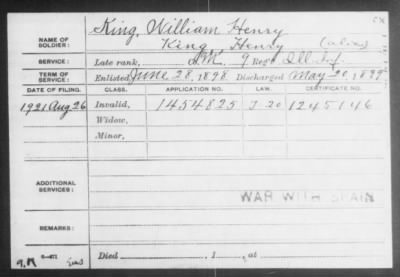 NAME OF SOLDIER: King, William Henry
King Henry (alias)
SERVICE: Late rank, 9 Regt Ill. Inf.
TERM OF SERVICE: Enlisted June 28, 1898 Discharged May 20, 1899
DATE OF FILING. CLASS. APPLICATION NO. LAW. CERTIFICATE NO.
1921 Aug 26 Invalid, 1454825 J 20 1245146
Widow,
Minor,
ADDITIONAL SERVICES:
WAR WITH SPAIN
REMARKS:
Died , 1 , at